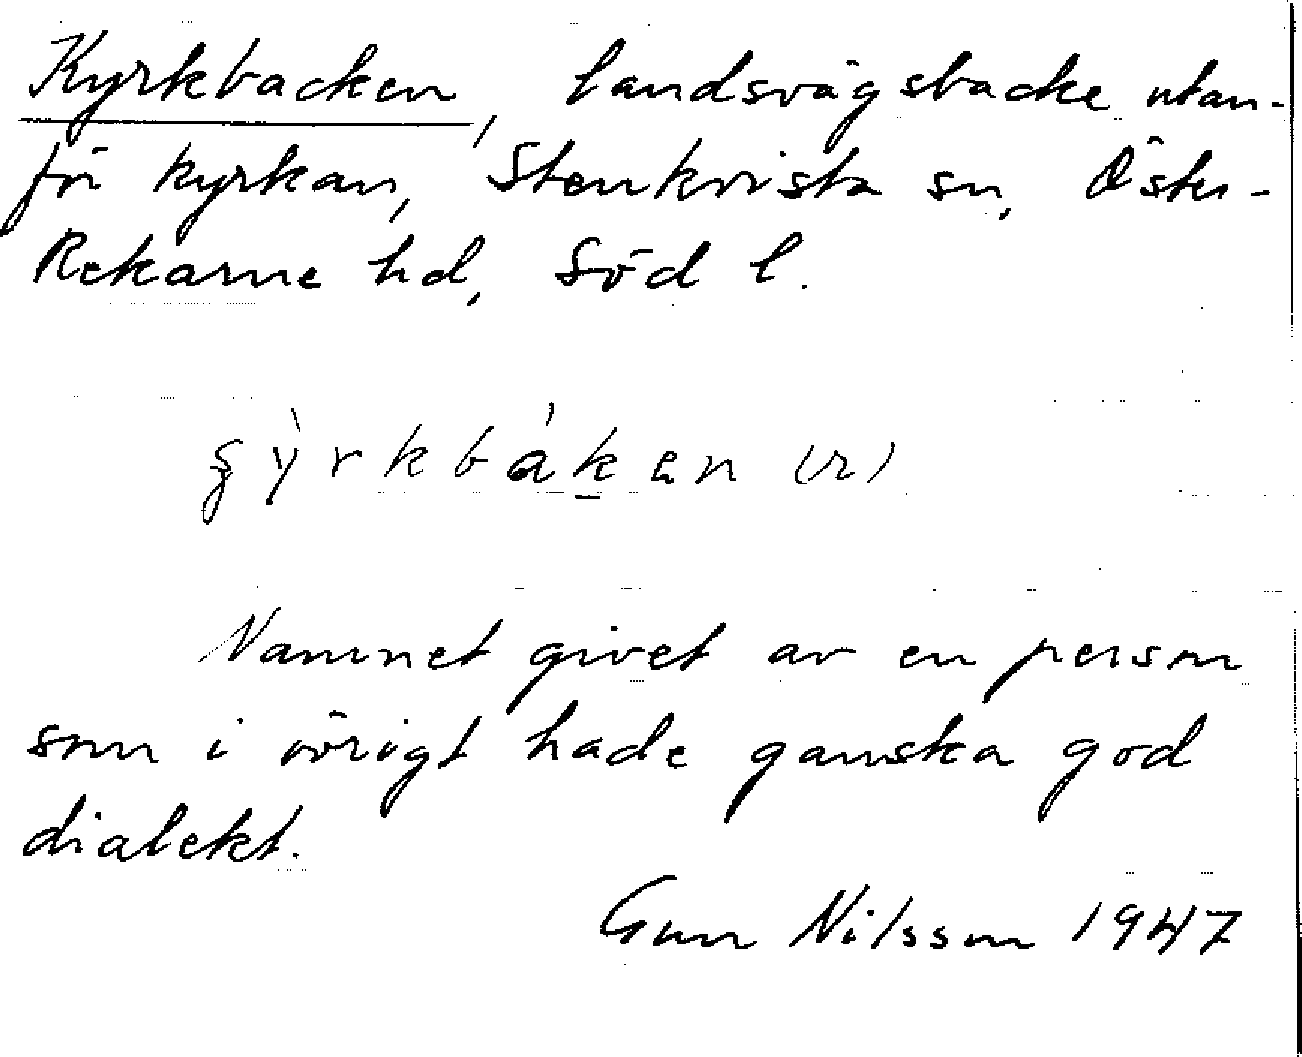 Kyrkbacken, landsvägsbacke utan-
för kyrkan, Stenkvista sn, Öster-
Rekarne hd, Söd l.
ꞩỳrkbák̲en (r)
Namnet givet av en person
som i övrigt hade ganska god
dialekt.
Gun Nilsson 1947